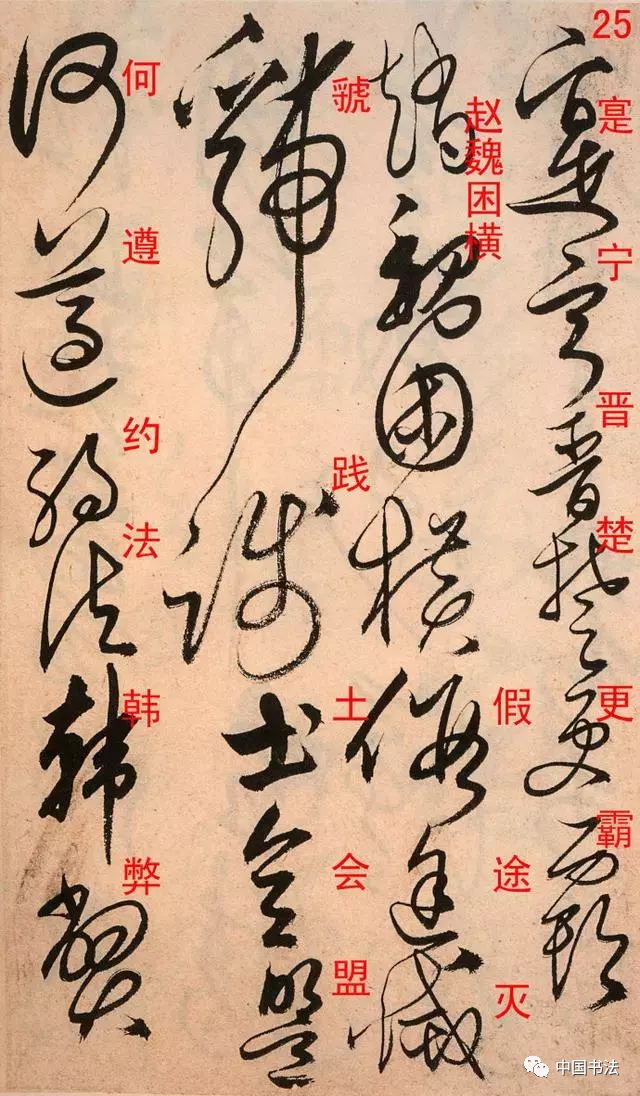 25
寔宁晋楚更霸
赵魏困横假途灭
虢践土会盟
何遵约法韩弊
中国书法